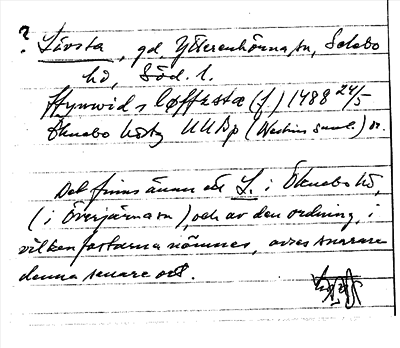 ? Lövsta, gd, Ytterenhörna sn, Selebo
hd, Söd. l.
ffynwid s Løffzstæ (f) 1488 24/5
Öknebo häst UUB p (Westins saml.) or.
Det finns även ett L. i Öknebo hd,
(i Överjärna sn), och av den ordning, i
vilken fastarna nämnes, avses snarare
denna senare ort.